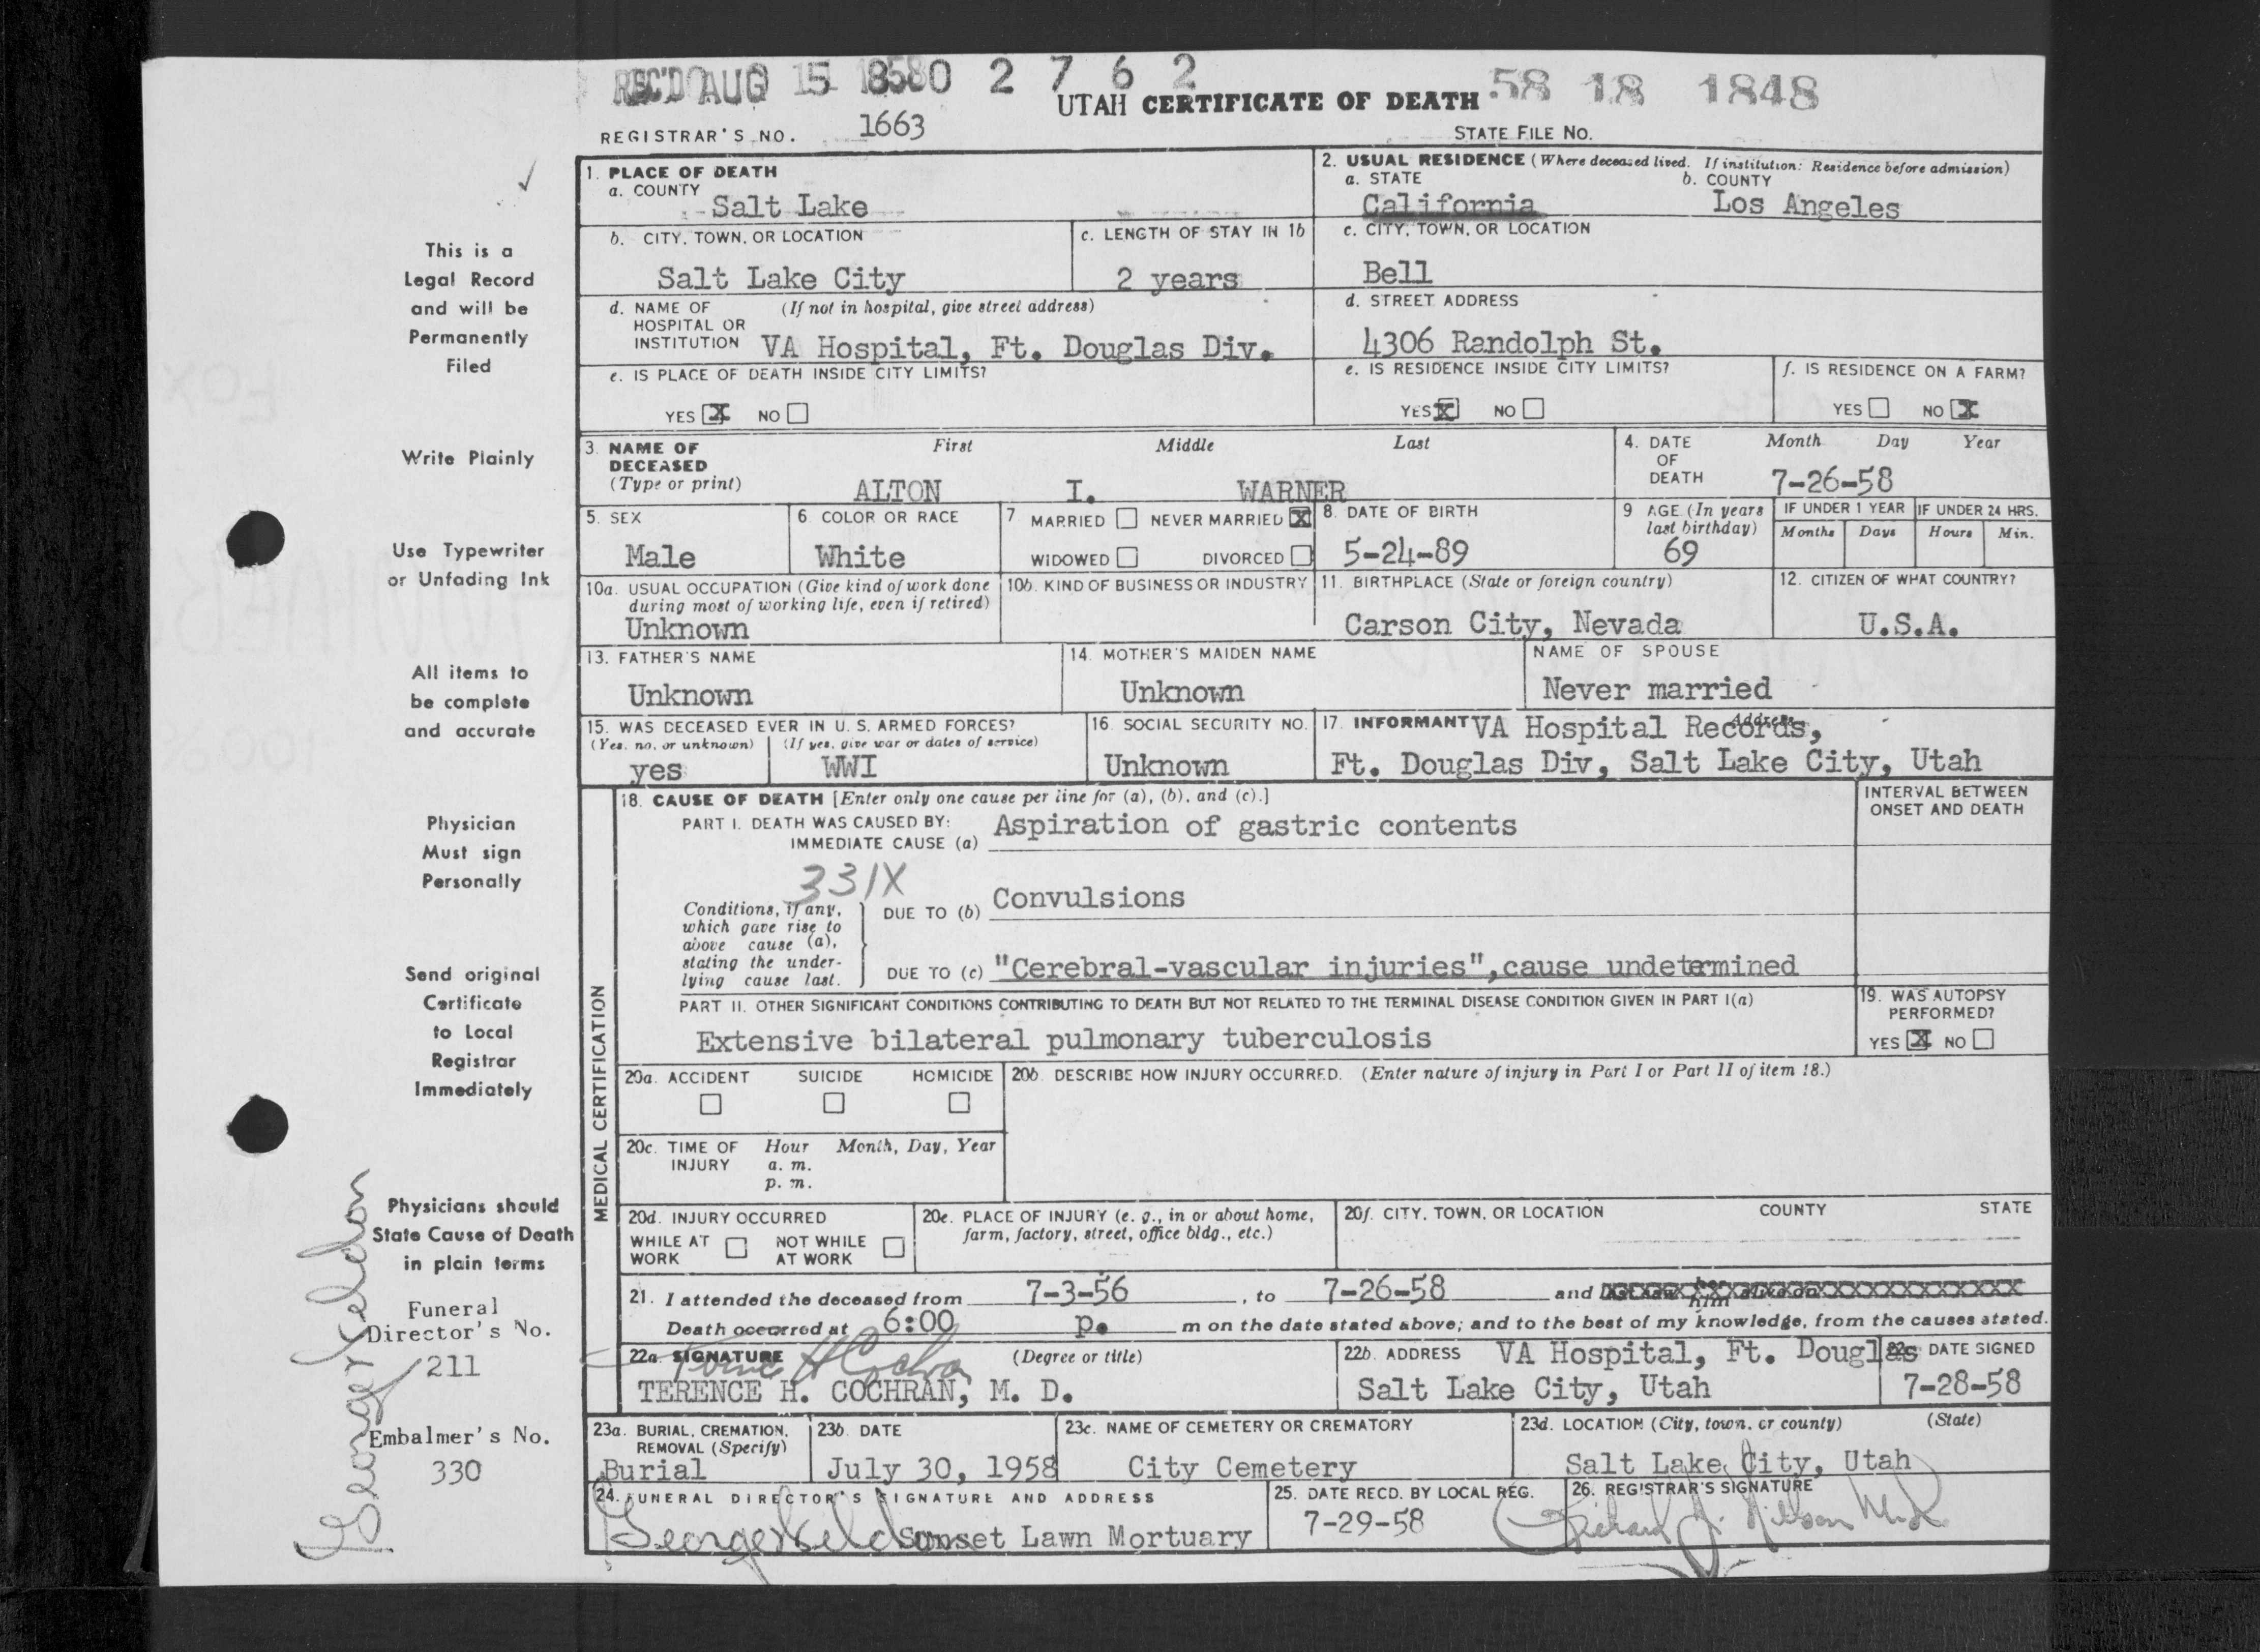 REC'D AUG 15 1958 0 2 7 6 2
58 18 1848
UTAH CERTIFICATE OF DEATH
REGISTRAR'S NO. 1663
STATE FILE NO.
This is a
Legal Record
and will be
Permanently
Filed
Write Plainly
Use Typewriter
or Unfading Ink
All items to
be complete
and accurate
Physician
Must sign
Personally
Send original
Certificate
to Local
Registrar
Immediately
Physicians should
State Cause of Death
in plain terms
Funeral
Director's No.
211
Embalmer's No.
330
1. PLACE OF DEATH
a. COUNTY
Salt Lake
2. USUAL RESIDENCE (Where deceased lived. If institution: Residence before admission)
a. STATE b. COUNTY
California Los Angeles
b. CITY, TOWN, OR LOCATION
Salt Lake City
c. LENGTH OF STAY IN 1b
2 years
c. CITY, TOWN, OR LOCATION
Bell
d. NAME OF (If not in hospital, give street address)
HOSPITAL OR
INSTITUTION VA Hospital, Ft. Douglas Div.
d. STREET ADDRESS
4306 Randolph St.
e. IS PLACE OF DEATH INSIDE CITY LIMITS?
YES X NO
e. IS RESIDENCE INSIDE CITY LIMITS?
YES X NO
f. IS RESIDENCE ON A FARM?
YES NO X
3. NAME OF
DECEASED
(Type or print)
First Middle Last
ALTON I. WARNER
4. DATE
OF
DEATH
Month Day Year
7-26-58
5. SEX
Male
6. COLOR OR RACE
White
7 MARRIED NEVER MARRIED X
WIDOWED DIVORCED
8. DATE OF BIRTH
5-24-89
9 AGE (In years
last birthday)
69
IF UNDER 1 YEAR IF UNDER 24 HRS.
Months Days Hours Min.
10a. USUAL OCCUPATION (Give kind of work done
during most of working life, even if retired)
Unknown
10b. KIND OF BUSINESS OR INDUSTRY
11. BIRTHPLACE (State or foreign country)
Carson City, Nevada
12. CITIZEN OF WHAT COUNTRY?
U.S.A.
13. FATHER'S NAME
Unknown
14. MOTHER'S MAIDEN NAME
Unknown
NAME OF SPOUSE
Never married
15. WAS DECEASED EVER IN U. S. ARMED FORCES?
(Yes, no, or unknown) (If yes, give war or dates of service)
yes WWI
16. SOCIAL SECURITY NO.
Unknown
17. INFORMANT Address
VA Hospital Records,
Ft. Douglas Div, Salt Lake City, Utah
MEDICAL CERTIFICATION
18. CAUSE OF DEATH [Enter only one cause per line for (a), (b), and (c).]
INTERVAL BETWEEN
ONSET AND DEATH
PART I. DEATH WAS CAUSED BY:
IMMEDIATE CAUSE (a) Aspiration of gastric contents
331X
Conditions, if any,
which gave rise to
above cause (a),
stating the under-
lying cause last.
DUE TO (b) Convulsions
DUE TO (c) "Cerebral-vascular injuries", cause undetermined
PART II. OTHER SIGNIFICANT CONDITIONS CONTRIBUTING TO DEATH BUT NOT RELATED TO THE TERMINAL DISEASE CONDITION GIVEN IN PART I(a)
Extensive bilateral pulmonary tuberculosis
19. WAS AUTOPSY
PERFORMED?
YES X NO
20a. ACCIDENT SUICIDE HOMICIDE
20b. DESCRIBE HOW INJURY OCCURRED. (Enter nature of injury in Part I or Part II of item 18.)
20c. TIME OF Hour Month, Day, Year
INJURY a. m.
p. m.
20d. INJURY OCCURRED
WHILE AT NOT WHILE
WORK AT WORK
20e. PLACE OF INJURY (e. g., in or about home,
farm, factory, street, office bldg., etc.)
20f. CITY, TOWN, OR LOCATION COUNTY STATE
21. I attended the deceased from 7-3-56, to 7-26-58 and
Death occurred at 6:00 p. m on the date stated above; and to the best of my knowledge, from the causes stated.
22a. SIGNATURE (Degree or title)
TERENCE H. COCHRAN, M. D.
22b. ADDRESS VA Hospital, Ft. Douglas
Salt Lake City, Utah
22c. DATE SIGNED
7-28-58
23a. BURIAL, CREMATION,
REMOVAL (Specify)
Burial
23b. DATE
July 30, 1958
23c. NAME OF CEMETERY OR CREMATORY
City Cemetery
23d. LOCATION (City, town, or county) (State)
Salt Lake City, Utah
24. FUNERAL DIRECTOR'S SIGNATURE AND ADDRESS
Sunset Lawn Mortuary
25. DATE RECD. BY LOCAL REG.
7-29-58
26. REGISTRAR'S SIGNATURE